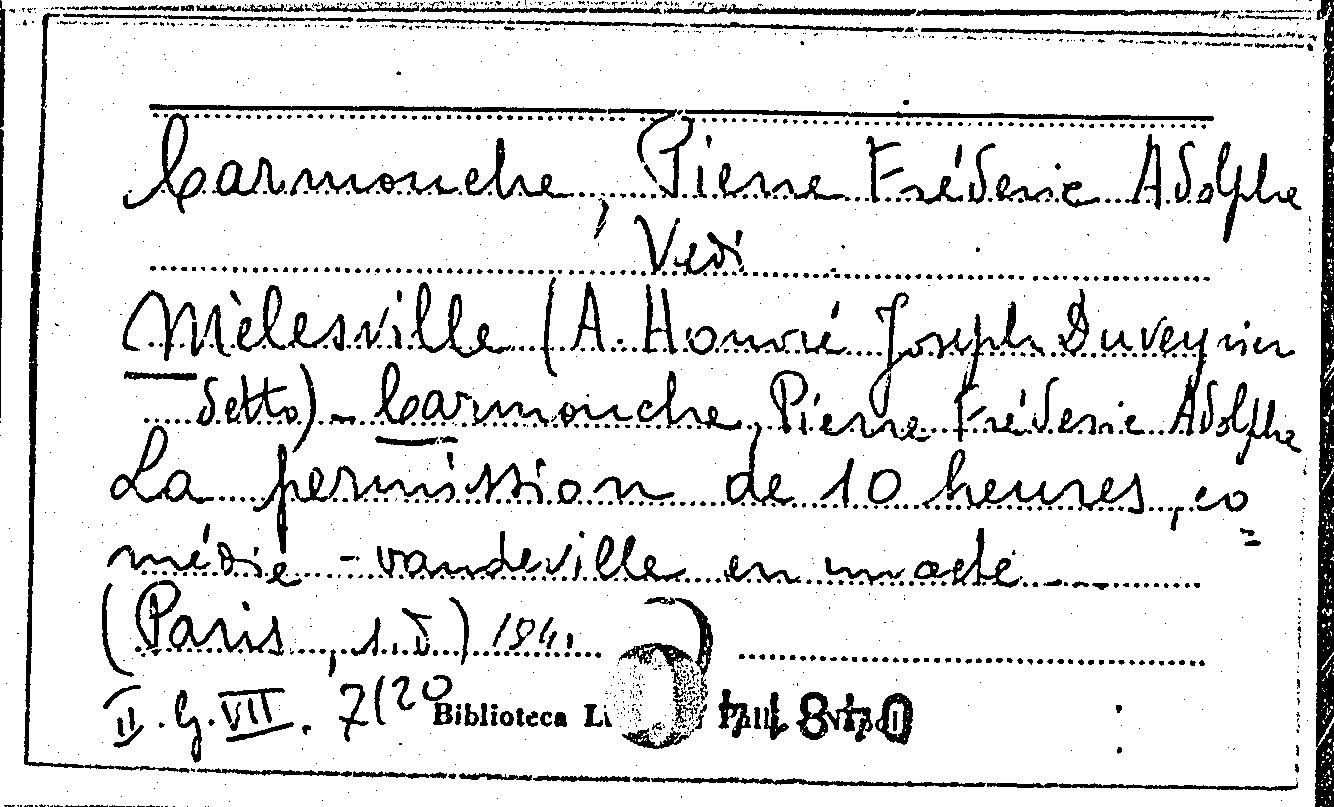 Carmouche, Pierre Fréderic Adolphe
Vedi
Mèlesville (A. Honoré Joseph Duveyrier
detto) - Carmouche, Pierre Fréderic Adolphe
La permission de 10 heures, co=
médie - vaudeville en un acte
(Paris, s.d.) 1841
II. G. VII. 7(20
Biblioteca